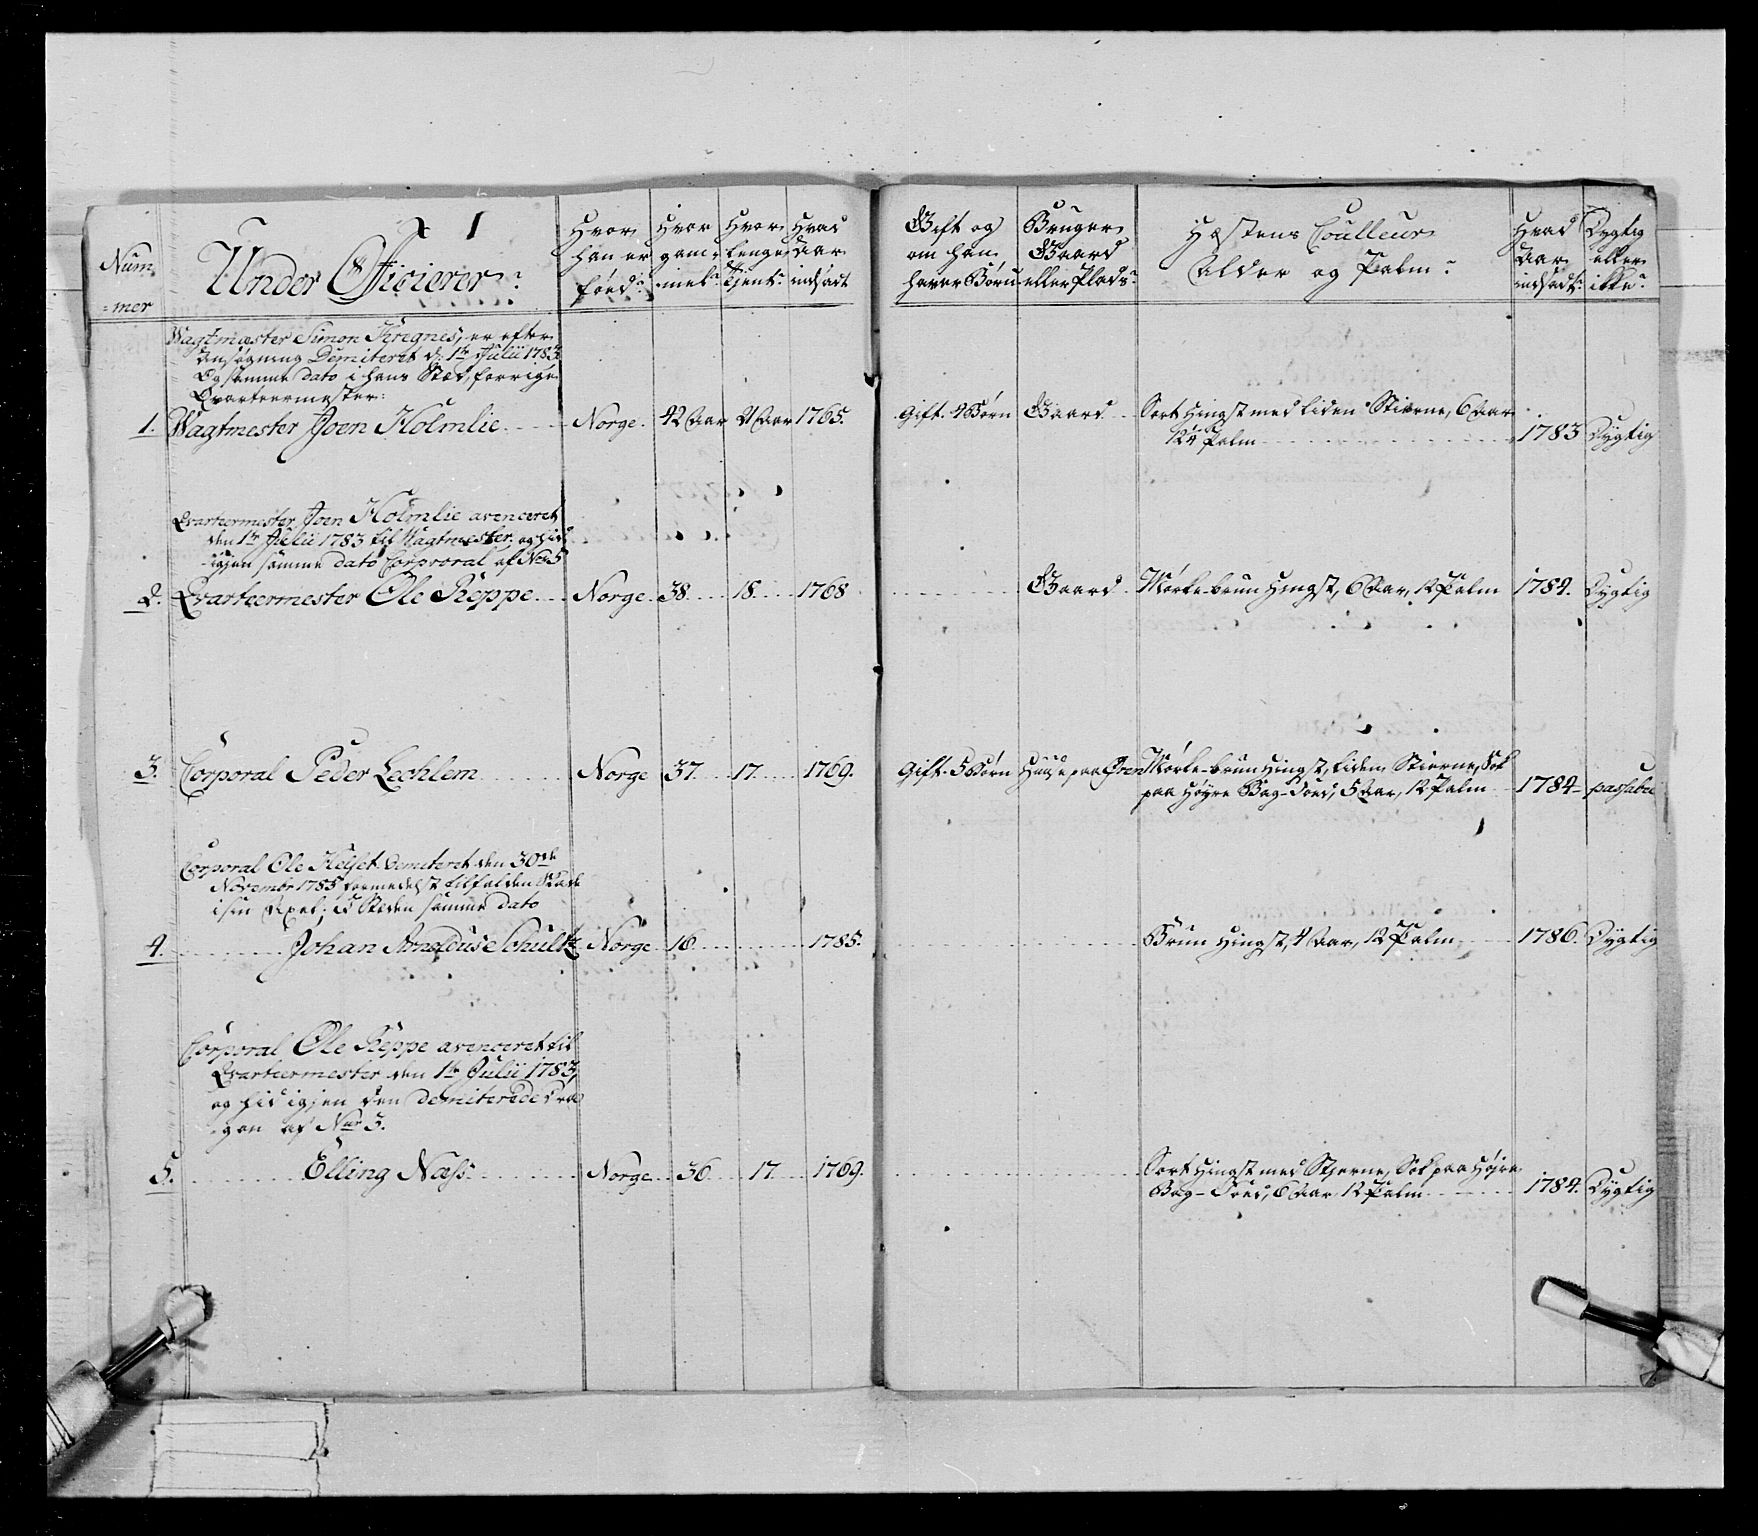 Num
=mer
Under Officierer:
Hvor
han er
föed:
Hvor
gam-
mel:
Hvor
lenge
Tient:
Hvad
Aar
indsadt
Gift og
om han
haver Börn
Bruger
Gaard
eller Plads:
Hæstens Coulleur
Alder og Palm:
Hvad
Aar
indsadt:
Dygtig
eller
ikke:
Wagtmæster Simon Kregnes, er efter
Ansøgning Demiteret d: 1te Julii 1783
Og samme dato i hans Stæd, forrige
Qvarteermester:
1. Wagtmester Joen Holmlie Norge. 42 Aar 21 Aar 1765. Gift. 4 Börn Gaard Sort Hingst med liden Stierne, 6 Aar
12¼ Palm 1783 Dygtig
Qvarteermester Joen Holmlie avenceret
den 1te Julii 1783 til Wagtmester, og hid
igjen samme dato Corporal af No 5
2. Qvarteermester Ole Reppe Norge. 38. 18. 1768 Gaard Mörke-brun Hingst, 6 Aar, 12 Palm 1784. Dygtig
3. Corporal Peder Lechlem Norge 37. 17. 1769. Gift. 5 Börn Huus paa Ören Mörke-brun Hingst, liden Stierne, Sok
paa Høyre Bag-Foed, 5 Aar, 12 Palm 1784 passabel
Corporal Ole Helset Demiteret den 30de
Novembr 1785 formedelst tilfalden Skade
i sin Axel; i Stæden samme dato
4. Johan Arnoldus Schultz Norge 16. 1785. Brun Hingst, 4 Aar, 12 Palm 1786. Dygtig
Corporal Ole Reppe avenceret til
Qvarteermester den 1te Julii 1783,
og hid igjen den demiterede Dra
-gon af Nr 3.
5. Elling Næss Norge 36 17. 1769. Sort Hingst med Stjerne, Sok paa Højre
Bag-Foed, 6 Aar 12 Palm 1784. Dygtig